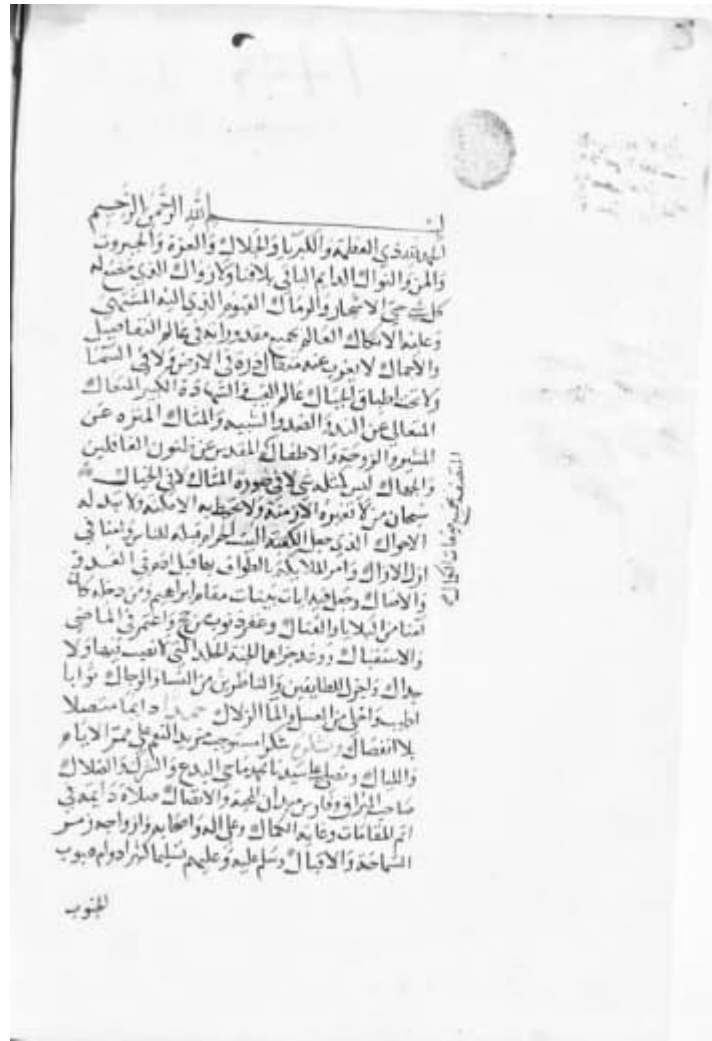 بسم الله الرحمن الرحيم
الحمد لله ذي العظمة والكبريا والجلال والعزة والجبروت
والمن والنوال الدايم الباقي بلا فنا ولا زوال الذي خضع له
كل شي حتي الاشجار والرمال القيوم الذي اليه المنتهي
وعليه الاتكال العالم بجميع مقدوراته في عالم التفاصيل
والاجمال لا يعزب عنه مثقال ذرة في الارض ولا في السما
ولا تحت اطباق الجبال عالم الغيب والشهادة الكبير المتعال
المتعالي عن الند والضد والشبيه والمثال المنزه عن
المشير والزوجة والاطفال المقدس عن ظنون الغافلين
والجهال ليس كمثله شي لا في صورة المثال لا في الخيال
المتصف بجميع صفات الكمال
سبحان من لا تغيره الازمنة ولا تحيط به الامكنة ولا تبدله
الاحوال الذي جعل الكعبة البيت الحرام قبلة للناس وامنا في
ازل الازال وامر الملايكة بالطواف بها قبل ادم في الغدو
والاصال وجعل فيه ايات بينات مقام ابراهيم ومن دخله كان
امنا من البلايا والغفر ذنوب من حج واعتمر في الماضي
والاستقبال ووعد جزاهما الجنة الخلد التي لا تعب فيها ولا
جدال واجزل للطايفين والناظرين من النسا والرجال ثوابا
اطيب واحلي من العسل والما الزلال حمدا دايما متصلا
بلا انفصال شكرا يستوجب مزيد النعم علي ممر الايام
والليال ونصلي علي سيدنا محمد ماحي البدع والشرك والضلال
صاحب البراق وفارس ميدان المحبة والاتصال صلاة دايمة في
اتم المقامات وغاية الكمال وعلي اله واصحابه وازواجه زمر
السماحة والاقبال وسلم عليه وعليهم تسليما كثيرا دوام هبوب
الجنوب